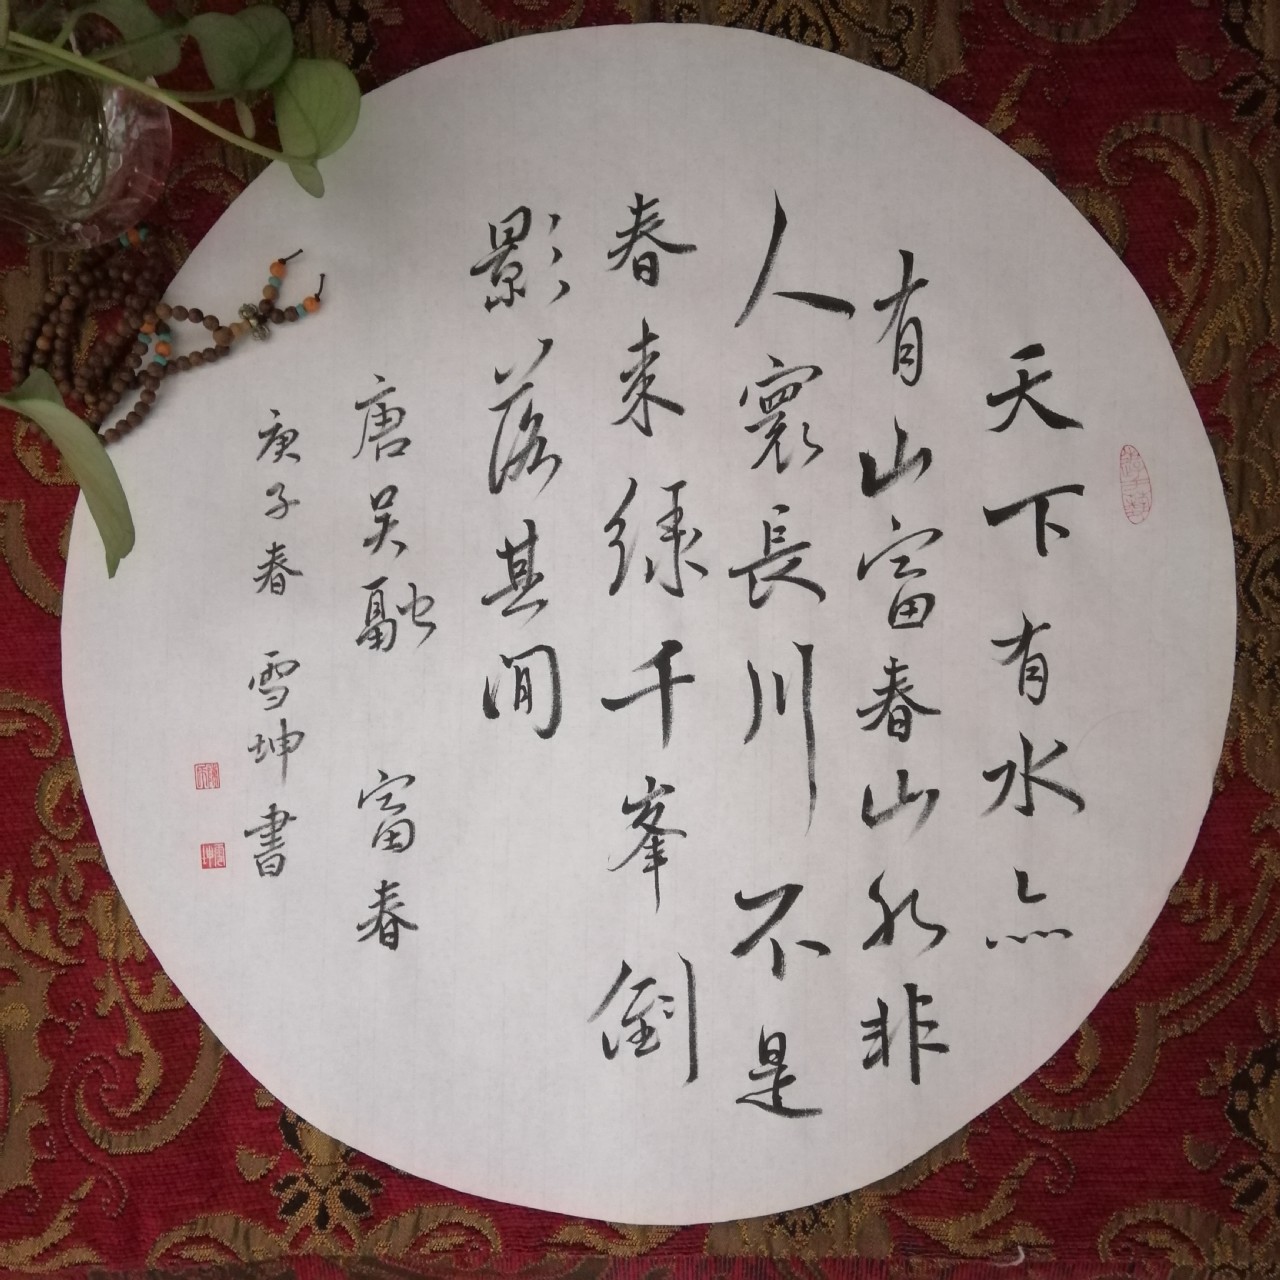 天下有水亦
有山富春山水非
人寰長川不是
春來綠千峯倒
影落其間
唐吴融 富春
庚子春 雪坤書